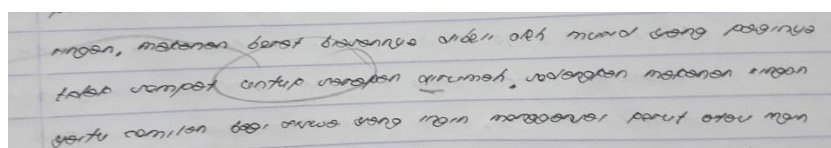 ringan, makanan berat biasannya dibeli oleh murid yang paginya
tidak sempat untuk sarapan dirumah, sedangkan makanan ringan
yaitu camilan bagi siswa yang ingin mengganjal perut atau